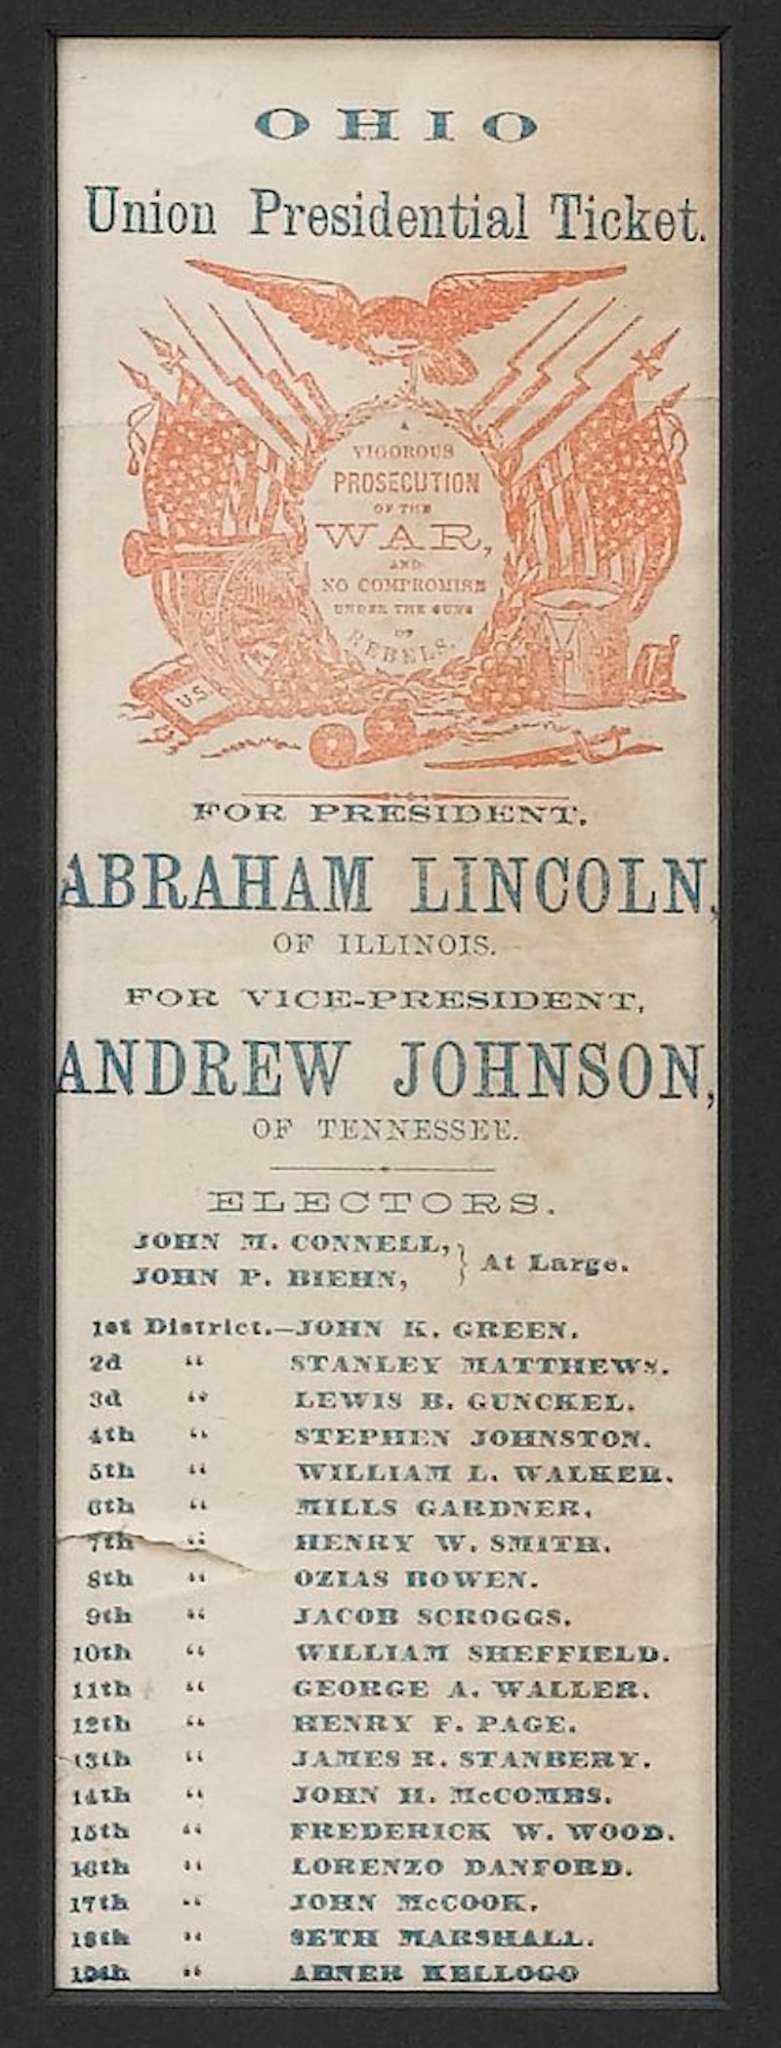 OHIO
Union Presidential Ticket.
A
VIGOROUS
PROSECUTION
OF THE
WAR,
AND
NO COMPROMISE
UNDER THE GUNS
OF
REBELS.
U.S
FOR PRESIDENT,
ABRAHAM LINCOLN,
OF ILLINOIS.
FOR VICE-PRESIDENT,
ANDREW JOHNSON,
OF TENNESSEE.
ELECTORS.
JOHN M. CONNELL,
JOHN P. BIEHN, } At Large.
1st District.—JOHN K. GREEN.
2d “ STANLEY MATTHEWS.
3d “ LEWIS B. GUNCKEL.
4th “ STEPHEN JOHNSTON.
5th “ WILLIAM L. WALKER.
6th “ MILLS GARDNER.
7th “ HENRY W. SMITH.
8th “ OZIAS BOWEN.
9th “ JACOB SCROGGS.
10th “ WILLIAM SHEFFIELD.
11th “ GEORGE A. WALLER.
12th “ HENRY F. PAGE.
13th “ JAMES R. STANBERY.
14th “ JOHN H. McCOMBS.
15th “ FREDERICK W. WOOD.
16th “ LORENZO DANFORD.
17th “ JOHN McCOOK.
18th “ SETH MARSHALL.
19th “ ABNER KELLOGG